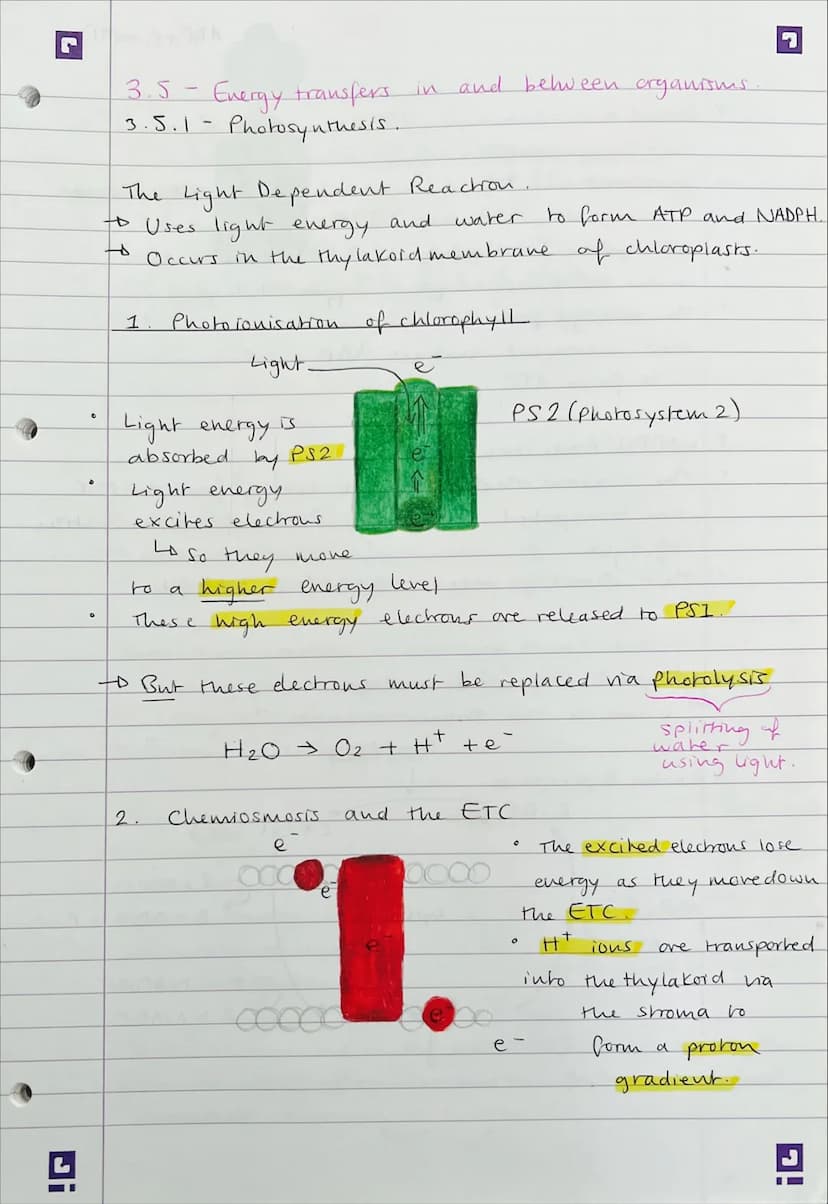 3.5 - Energy transfers in and between organisms.
3.5.1 - Photosynthesis.
The Light Dependent Reaction.
→ Uses light energy and water to form ATP and NADPH.
→ Occurs in the thylakoid membrane of chloroplasts.
1. Photoionisation of chlorophyll
Light
e⁻
PS2 (Photosystem 2)
e⁻
e⁻
• Light energy is
absorbed by PS2
• Light energy
excites electrons
↳ so they move
to a higher energy level
• These high energy electrons are released to PS1.
→ But these electrons must be replaced via photolysis
splitting of
water
using light.
H₂O → O₂ + H⁺ + e⁻
2. Chemiosmosis and the ETC
e⁻
e⁻
e⁻
e⁻
e⁻
• The excited electrons lose
energy as they move down
the ETC.
• H⁺ ions are transported
into the thylakoid via
the stroma to
form a proton
gradient.